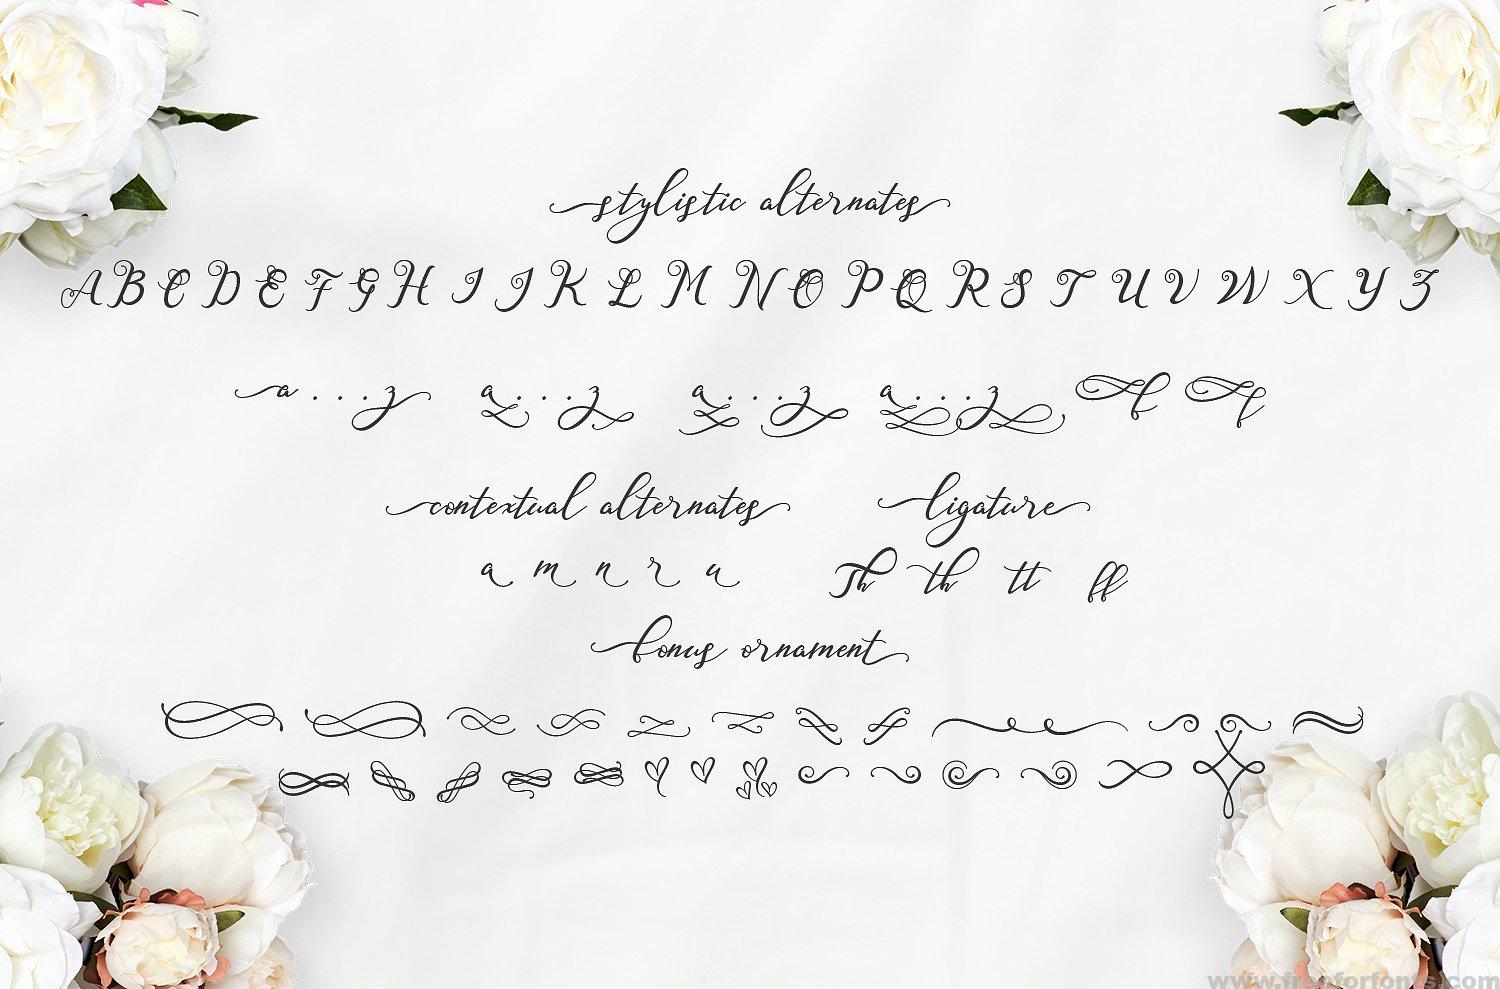 stylistic alternates
A B C D E F G H I J K L M N O P Q R S T U V W X Y Z
a...z a...z a...z a...z
contextual alternates ligature
a m n r u Th th tt ff
bonus ornament
www.freeforfonts.com